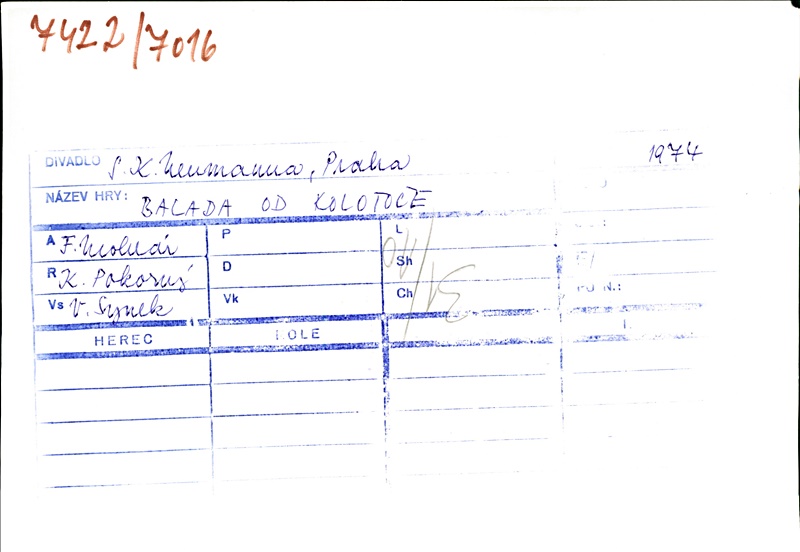 7422/7016
DIVADLO S. K. Neumanna, Praha 1974
NÁZEV HRY: BALADA OD KOLOTOČE
A F. Molnár P L
R K. Pokorný D Sh
Vs V. Synek Vk Ch
HEREC ROLE